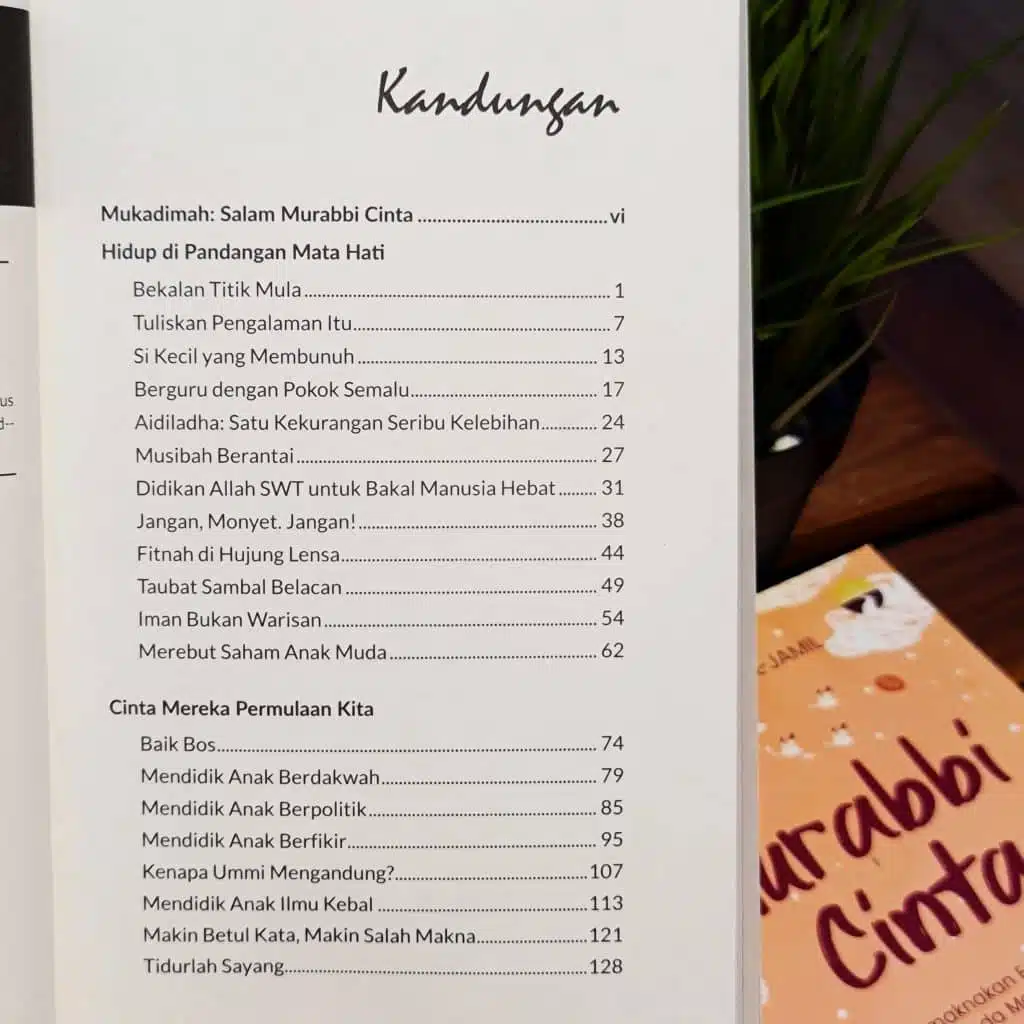 Kandungan
Mukadimah: Salam Murabbi Cinta ..................................... vi
Hidup di Pandangan Mata Hati
Bekalan Titik Mula ..................................... 1
Tuliskan Pengalaman Itu ..................................... 7
Si Kecil yang Membunuh ..................................... 13
Berguru dengan Pokok Semalu ..................................... 17
Aidiladha: Satu Kekurangan Seribu Kelebihan ............ 24
Musibah Berantai ..................................... 27
Didikan Allah SWT untuk Bakal Manusia Hebat ........ 31
Jangan, Monyet. Jangan! ..................................... 38
Fitnah di Hujung Lensa ..................................... 44
Taubat Sambal Belacan ..................................... 49
Iman Bukan Warisan ..................................... 54
Merebut Saham Anak Muda ..................................... 62
Cinta Mereka Permulaan Kita
Baik Bos ..................................... 74
Mendidik Anak Berdakwah ..................................... 79
Mendidik Anak Berpolitik ..................................... 85
Mendidik Anak Berfikir ..................................... 95
Kenapa Ummi Mengandung? ..................................... 107
Mendidik Anak Ilmu Kebal ..................................... 113
Makin Betul Kata, Makin Salah Makna ..................... 121
Tidurlah Sayang ..................................... 128
us
d--
JAMIL
urabbi
Cinta